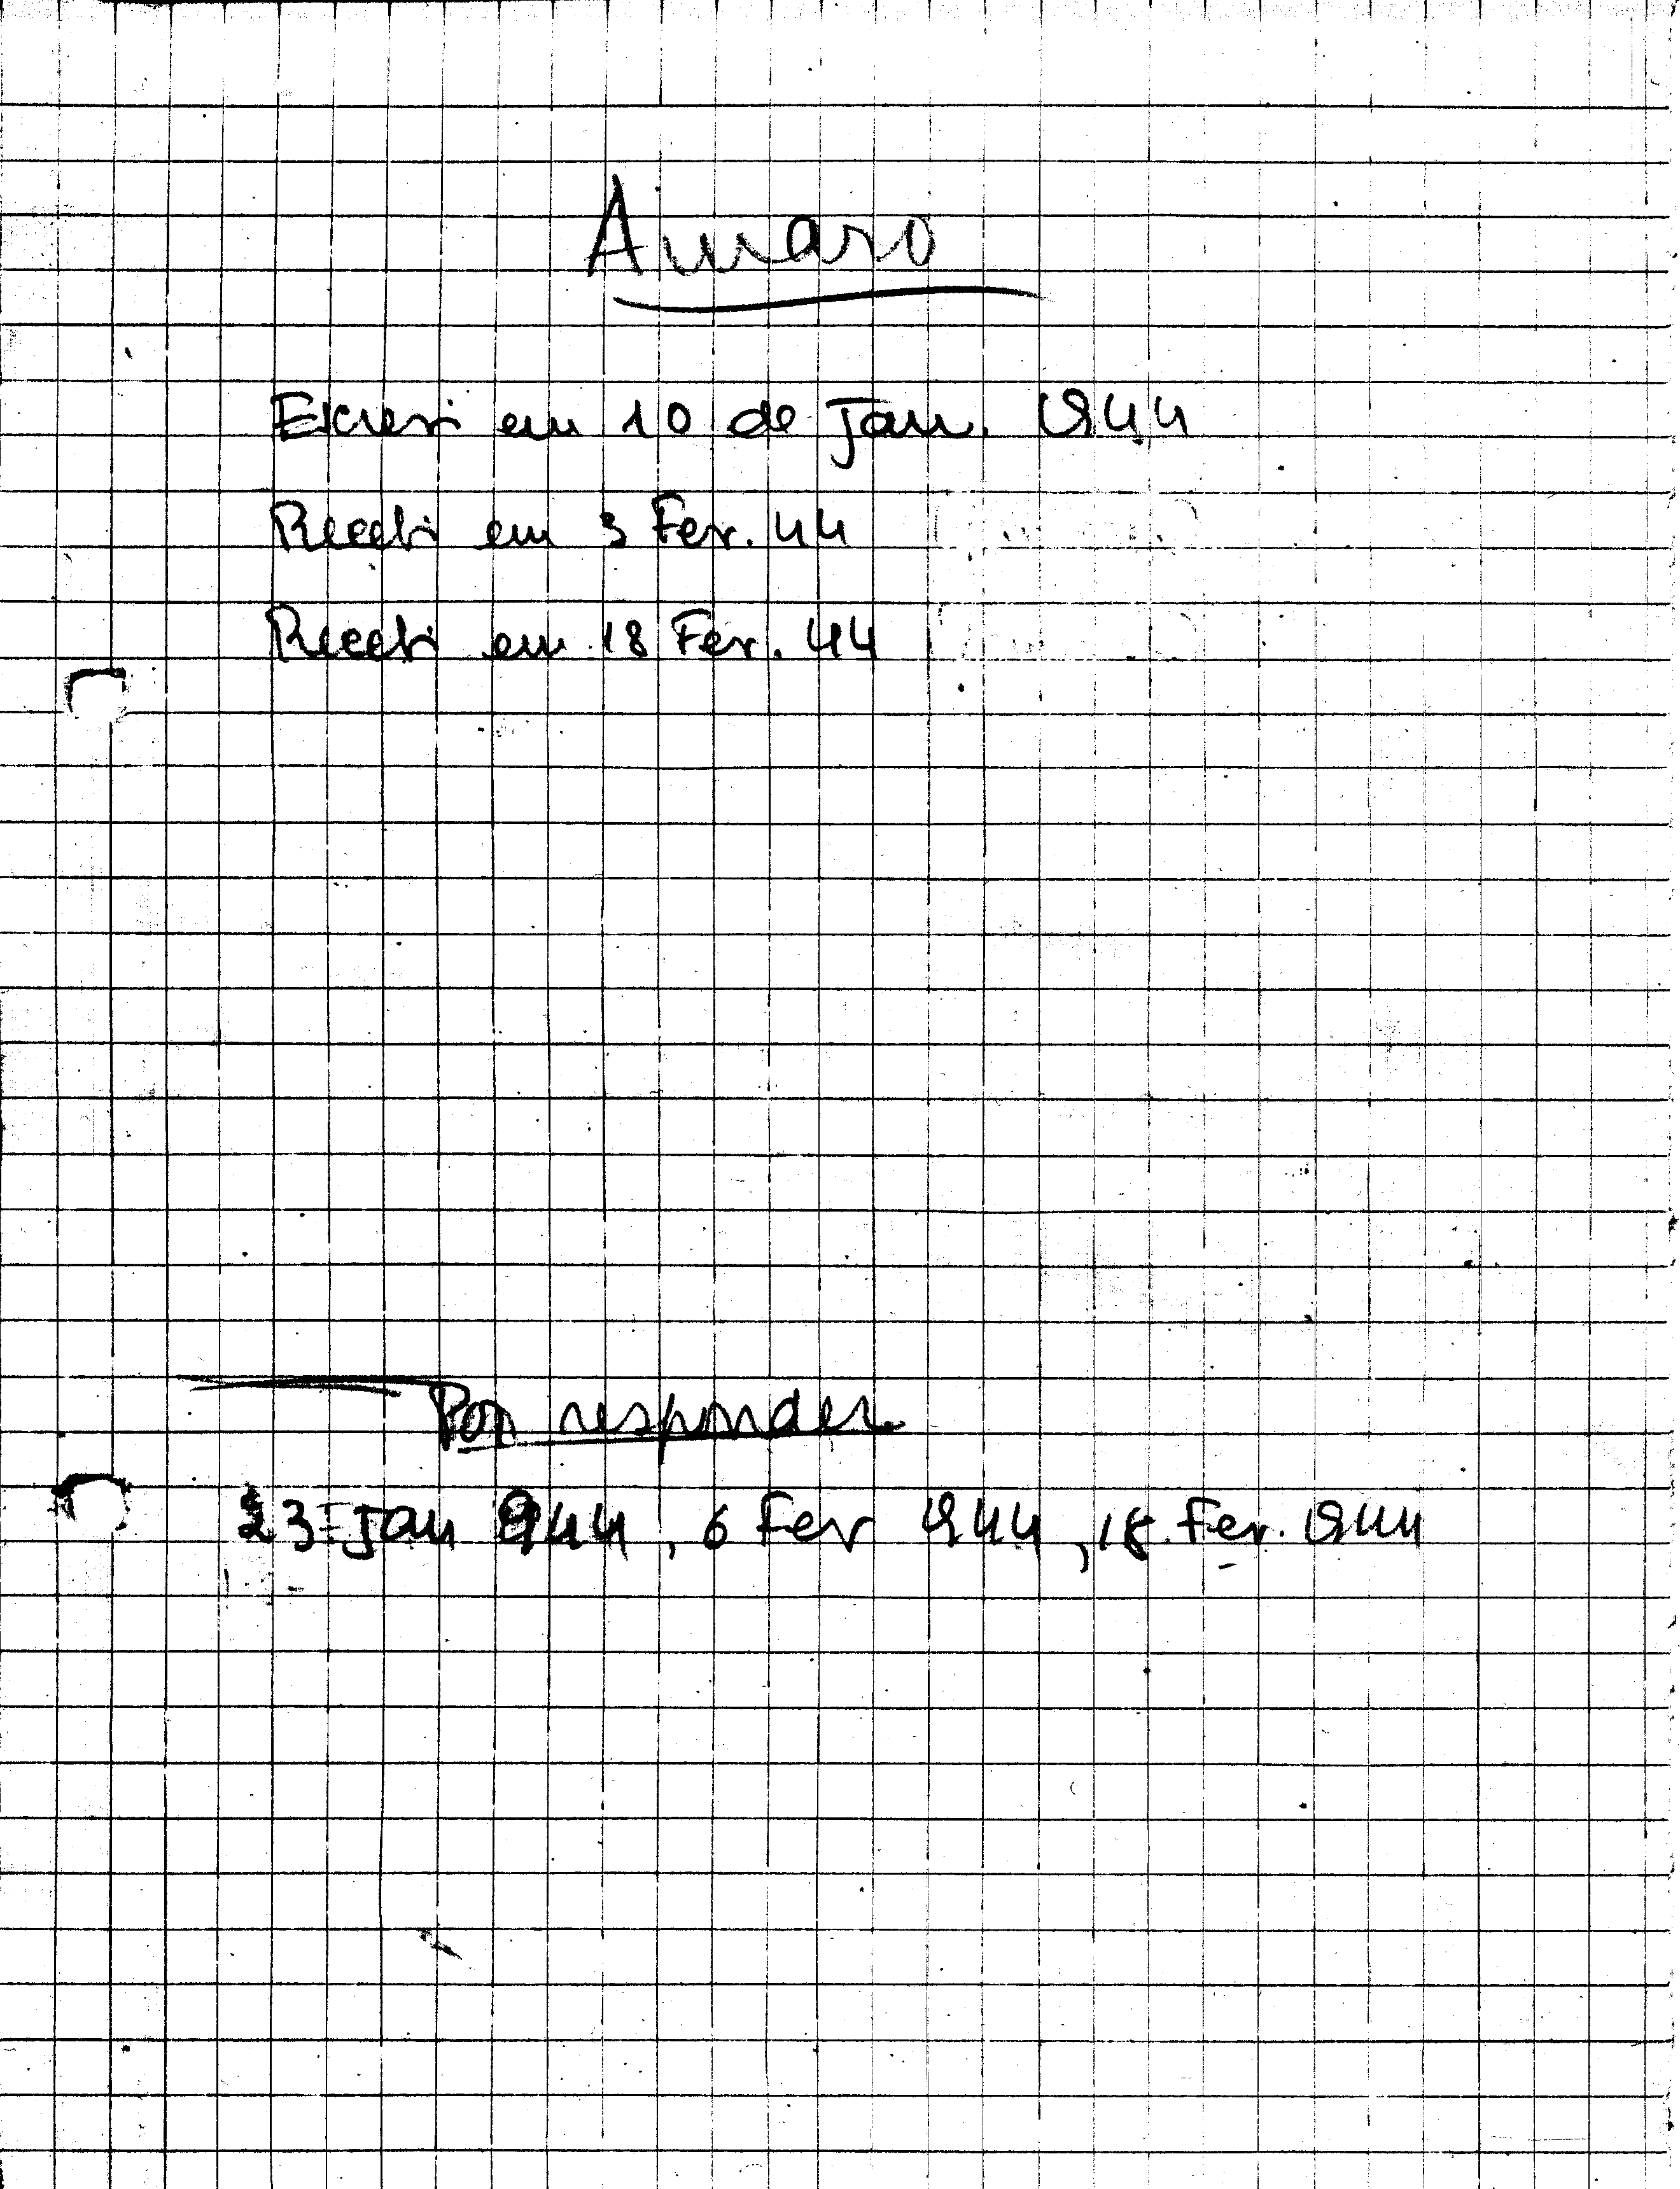 Amaro
Escrevi em 10 de Jan. 1944
Recebi em 3 Fev. 44
Recebi em 18 Fev. 44
Por responder
23 Jan 944, 6 Fev 944, 18 Fev. 1944